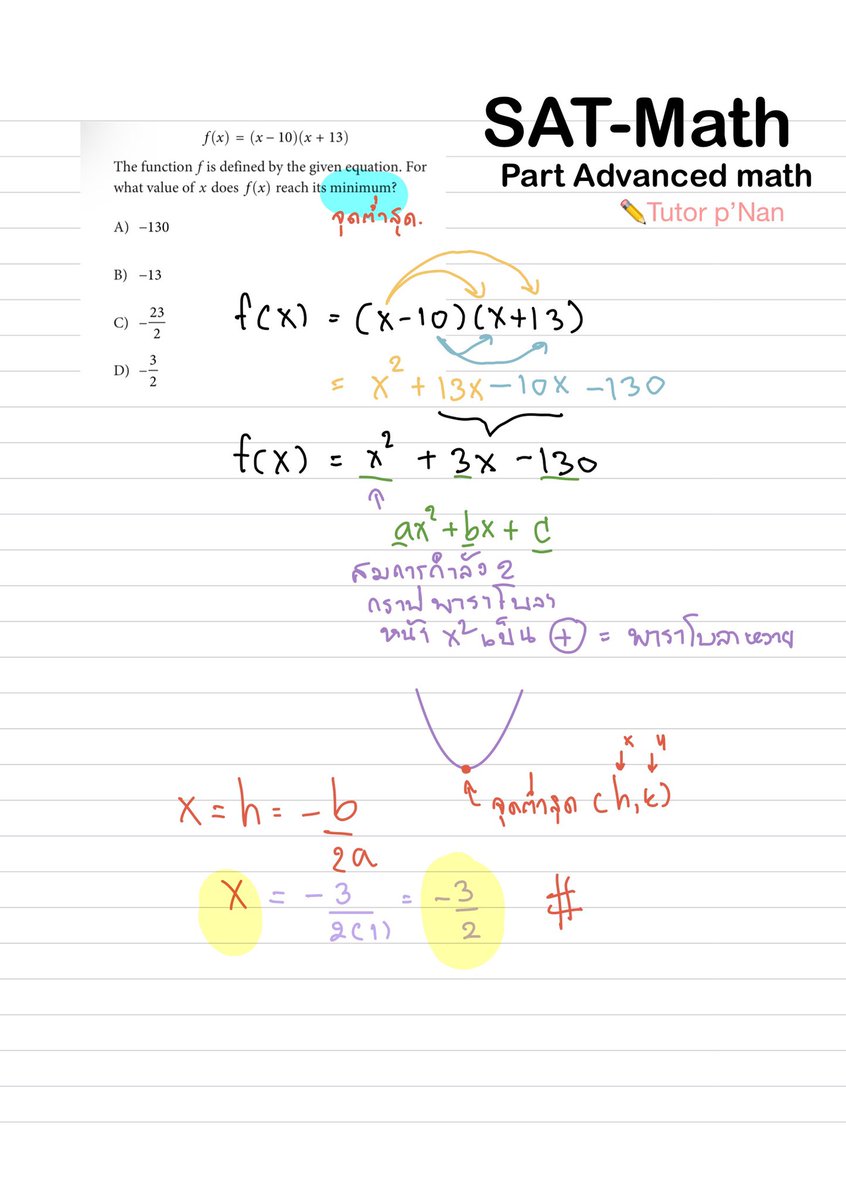 SAT-Math
Part Advanced math
✏️Tutor p'Nan
f(x) = (x − 10)(x + 13)
The function f is defined by the given equation. For
what value of x does f(x) reach its minimum?
จุดต่ำสุด.
A) −130
B) −13
C) −23/2
D) −3/2
f(x) = (x-10)(x+13)
= x² + 13x - 10x - 130
f(x) = x² + 3x - 130
ax² + bx + c
สมการกำลัง 2
กราฟพาราโบลา
หน้า x² เป็น + = พาราโบลาหงาย
x y
จุดต่ำสุด (h, k)
x = h = -b/2a
x = -3/2(1) = -3/2 #